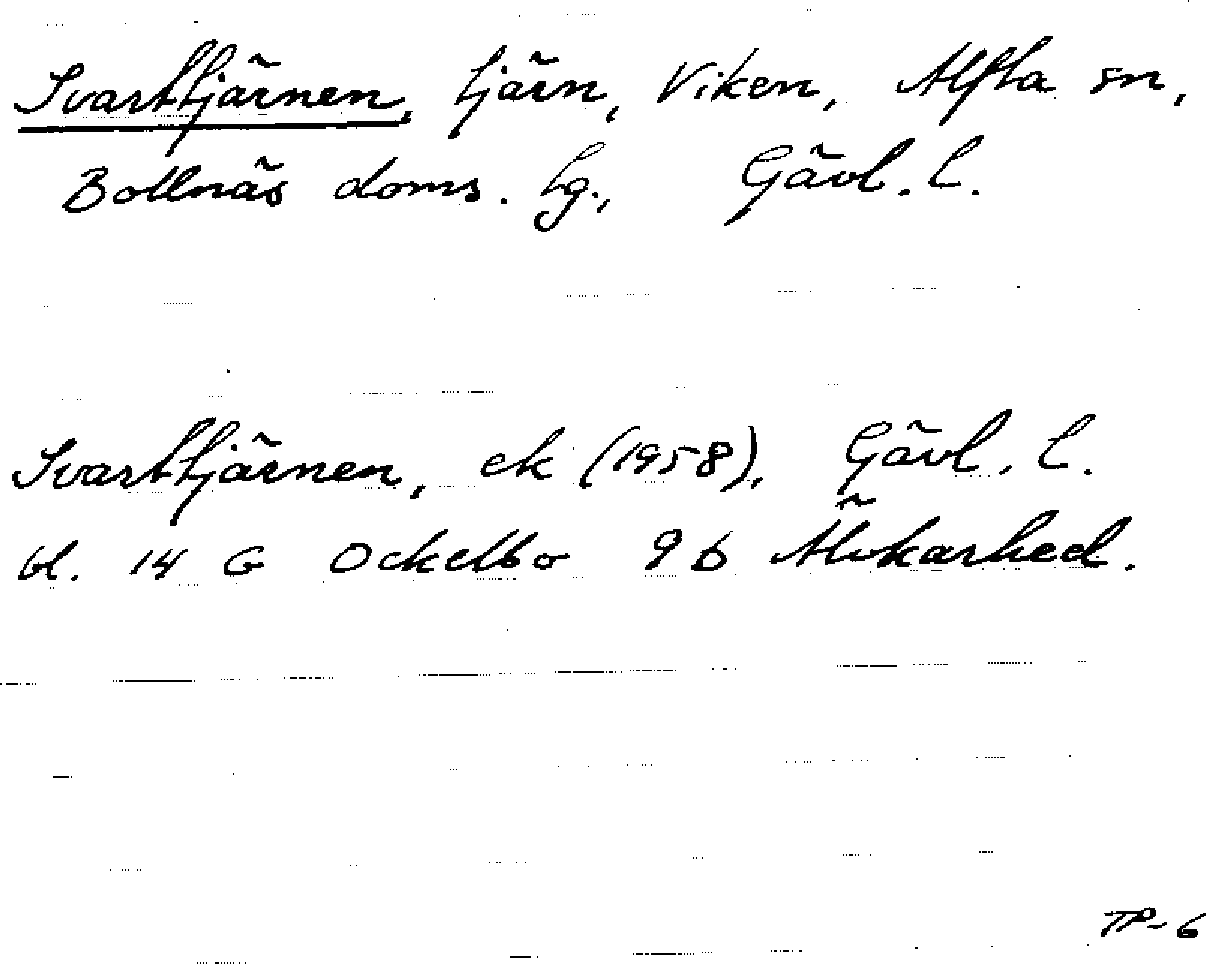 Svarttjärnen, tjärn, Viken, Alfta sn,
Bollnäs doms. tg., Gävl. l.
Svarttjärnen, ek (1958), Gävl. l.
bl. 14 G Ockelbo 9 b Älvkarhed.
TP-6